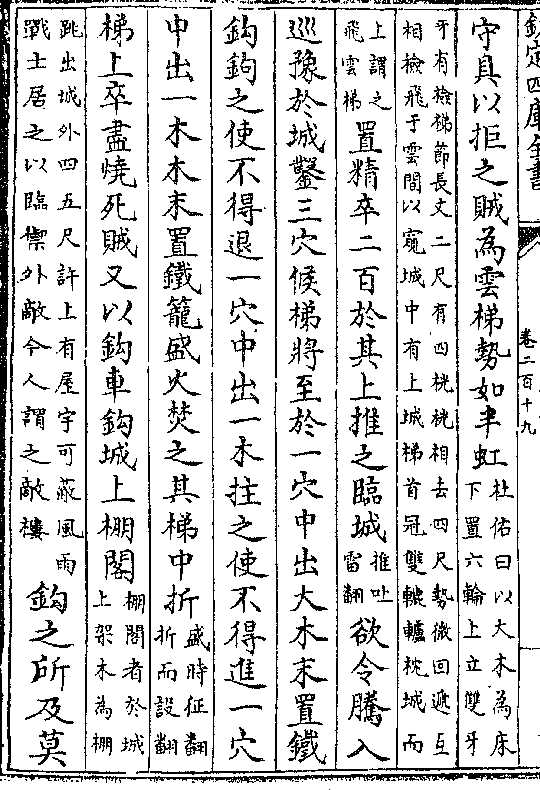 欽定四庫全書
卷二百十九
守具以拒之賊為雲梯勢如半虹
杜佑曰以大木為床
下置六輪上立雙牙
牙有檢梯節長丈二尺有四桄桄相去四尺勢微回遞互
相檢飛于雲間以窺城中有上城梯首冠雙轆轤枕城而
上謂之
飛雲梯
置精卒二百於其上推之臨城
推吐
雷翻
欲令騰入
巡豫於城鑿三穴候梯將至於一穴中出大木末置鐵
鈎鈎之使不得退一穴中出一木拄之使不得進一穴
中出一木木末置鐵籠盛火焚之其梯中折
盛時征翻
折而設翻
梯上卒盡燒死賊又以鈎車鈎城上棚閣
棚閣者於城
上架木為棚
跳出城外四五尺許上有屋宇可蔽風雨
戰士居之以臨禦外敵今人謂之敵樓
鈎之所及莫